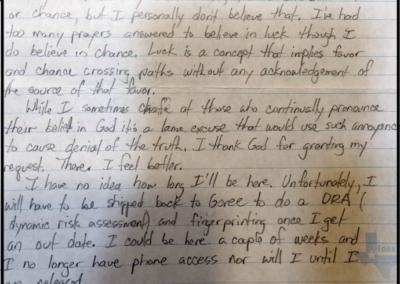 or chance, but I personally don't believe that. I've had
too many prayers answered to believe in luck though I
do believe in chance. Luck is a concept that implies favor
and chance crossing paths without any acknowledgement of
the source of that favor.
While I sometimes chafe at those who continually pronounce
their belief in God it's a lame excuse that would use such annoyance
to cause denial of the truth. I thank God for granting my
request. There. I feel better.
I have no idea how long I'll be here. Unfortunately, I
will have to be shipped back to Goree to do a DRA (
dynamic risk assessment) and fingerprinting once I get
an out date. I could be here a couple of weeks and
I no longer have phone access nor will I until I
am released